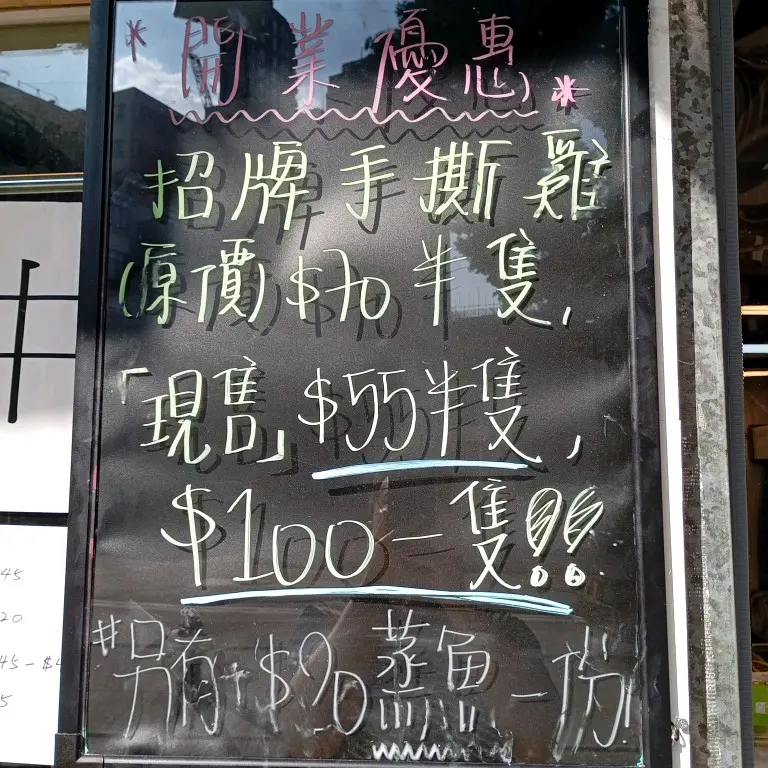 *開業優惠*
招牌手撕雞
(原價)$70半隻,
「現售」$55半隻,
$100一隻!!
#另有+$90蒸魚一份!
45
20
45-$4
5